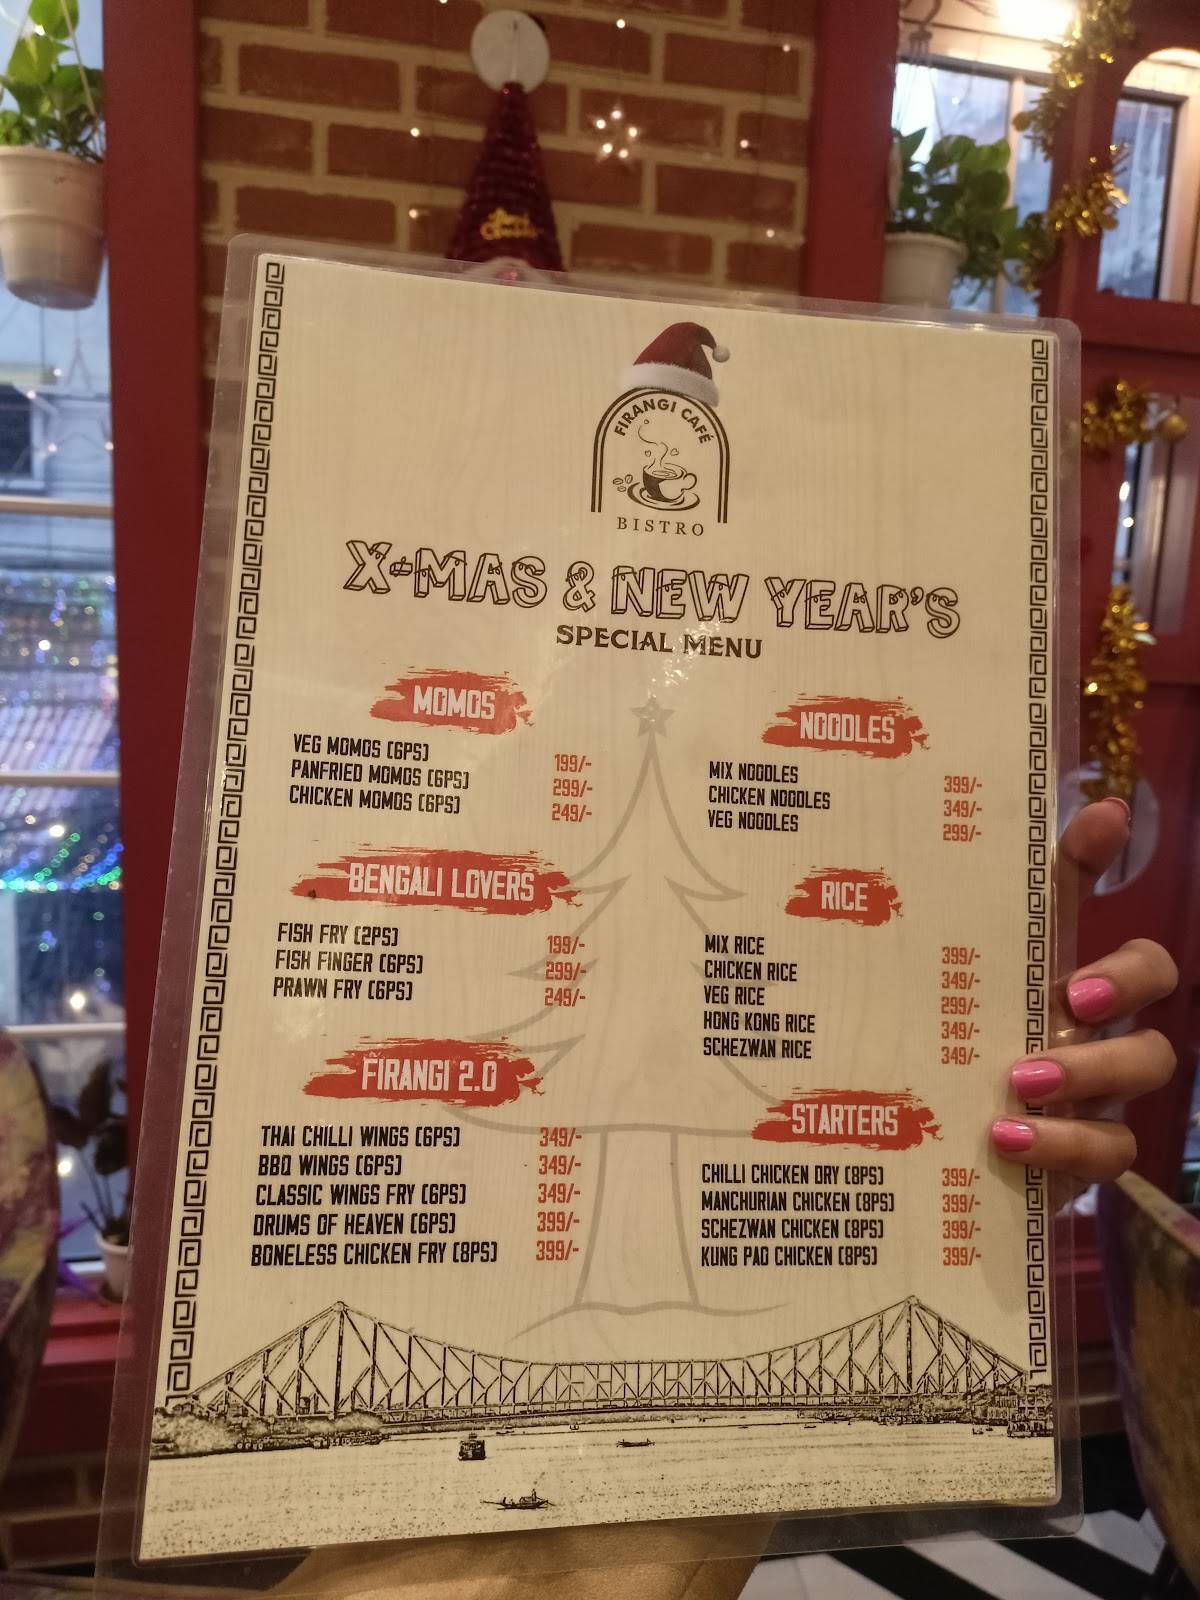 FIRANGI CAFÉ
BISTRO
X-MAS & NEW YEAR'S
SPECIAL MENU
MOMOS
VEG MOMOS (6PS) 199/-
PANFRIED MOMOS (6PS) 299/-
CHICKEN MOMOS (6PS) 249/-
BENGALI LOVERS
FISH FRY (2PS) 199/-
FISH FINGER (6PS) 299/-
PRAWN FRY (6PS) 249/-
FIRANGI 2.0
THAI CHILLI WINGS (6PS) 349/-
BBQ WINGS (6PS) 349/-
CLASSIC WINGS FRY (6PS) 349/-
DRUMS OF HEAVEN (6PS) 399/-
BONELESS CHICKEN FRY (8PS) 399/-
NOODLES
MIX NOODLES 399/-
CHICKEN NOODLES 349/-
VEG NOODLES 299/-
RICE
MIX RICE 399/-
CHICKEN RICE 349/-
VEG RICE 299/-
HONG KONG RICE 349/-
SCHEZWAN RICE 349/-
STARTERS
CHILLI CHICKEN DRY (8PS) 399/-
MANCHURIAN CHICKEN (8PS) 399/-
SCHEZWAN CHICKEN (8PS) 399/-
KUNG PAO CHICKEN (8PS) 399/-